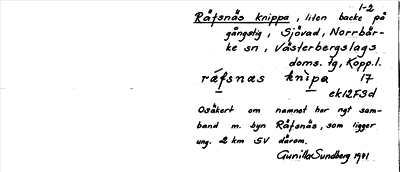 1-2
Räfsnäs knippa, liten backe på
gångstig, Sjövad, Norrbär-
ke sn, Västerbergslags
doms. tg, Kopp.l.
räfsnas knipa 17
ek12F3d
Osäkert om namnet har ngt sam-
band m. byn Räfsnäs, som ligger
ung. 2 km SV därom.
Gunilla Sundberg 1981